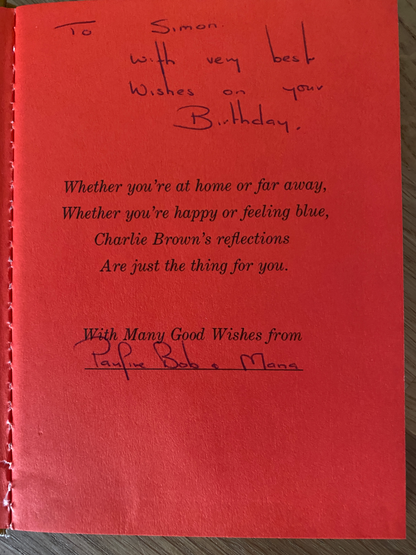 To Simon.
With very best
Wishes on your
Birthday.
Whether you're at home or far away,
Whether you're happy or feeling blue,
Charlie Brown's reflections
Are just the thing for you.
With Many Good Wishes from
Pauline Bob & Mona